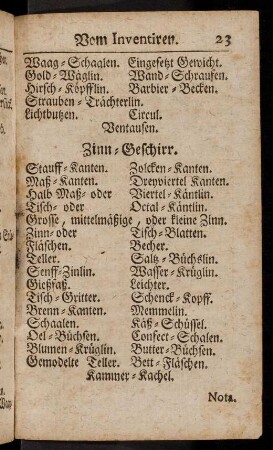 Vom Inventiren. 23
Waag-Schaalen. Eingesetzt Gewicht.
Gold-Wäglin. Wand-Schraufen.
Hirsch-Köpfflin. Barbier-Becken.
Strauben-Trächterlin.
Lichtbutzen. Circul.
Ventausen.
Zinn-Geschirr.
Stauff-Kanten. Zolcken-Kanten.
Maß-Kanten. Dreyviertel Kanten.
Halb Maß- oder Viertel-Käntlin.
Tisch- oder Octal-Käntlin.
Grosse, mittelmäßige, oder kleine Zinn.
Zinn- oder Tisch-Blatten.
Fläschen. Becher.
Teller. Saltz-Büchßlin.
Senff-Zinlin. Wasser-Krüglin.
Gießfaß. Leichter.
Tisch-Gritter. Schenck-Kopff.
Brenn-Kanten. Memmelin.
Schaalen. Käß-Schüssel.
Oel-Büchsen. Confect-Schalen.
Blumen-Krüglin. Butter-Büchsen.
Gemodelte Teller. Bett-Fläschen.
Kammer-Kachel.
Nota.